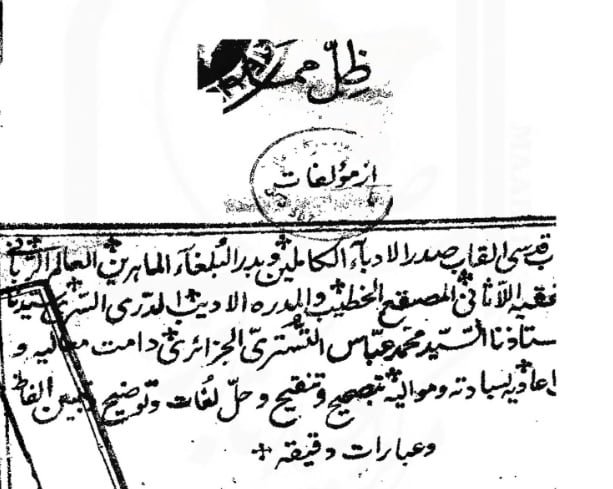 ظلّ
از مؤلفات
قدسی القاب صدر الادبآء الکاملین و بدر البلغآء الماهرین العالم الربانی
فقیه اللاثانی المصقع الخطیب والمدره الادیب الدری السری سیدنا
ستاذنا السّید محمد عبّاس التستری الجزائری دامت معالیه و
اعادیه لسیادته و موالیه بتصحیح و تنقیح و حلّ لُغات و توضیح و تبیین الفاظ
و عبارات دقیقه